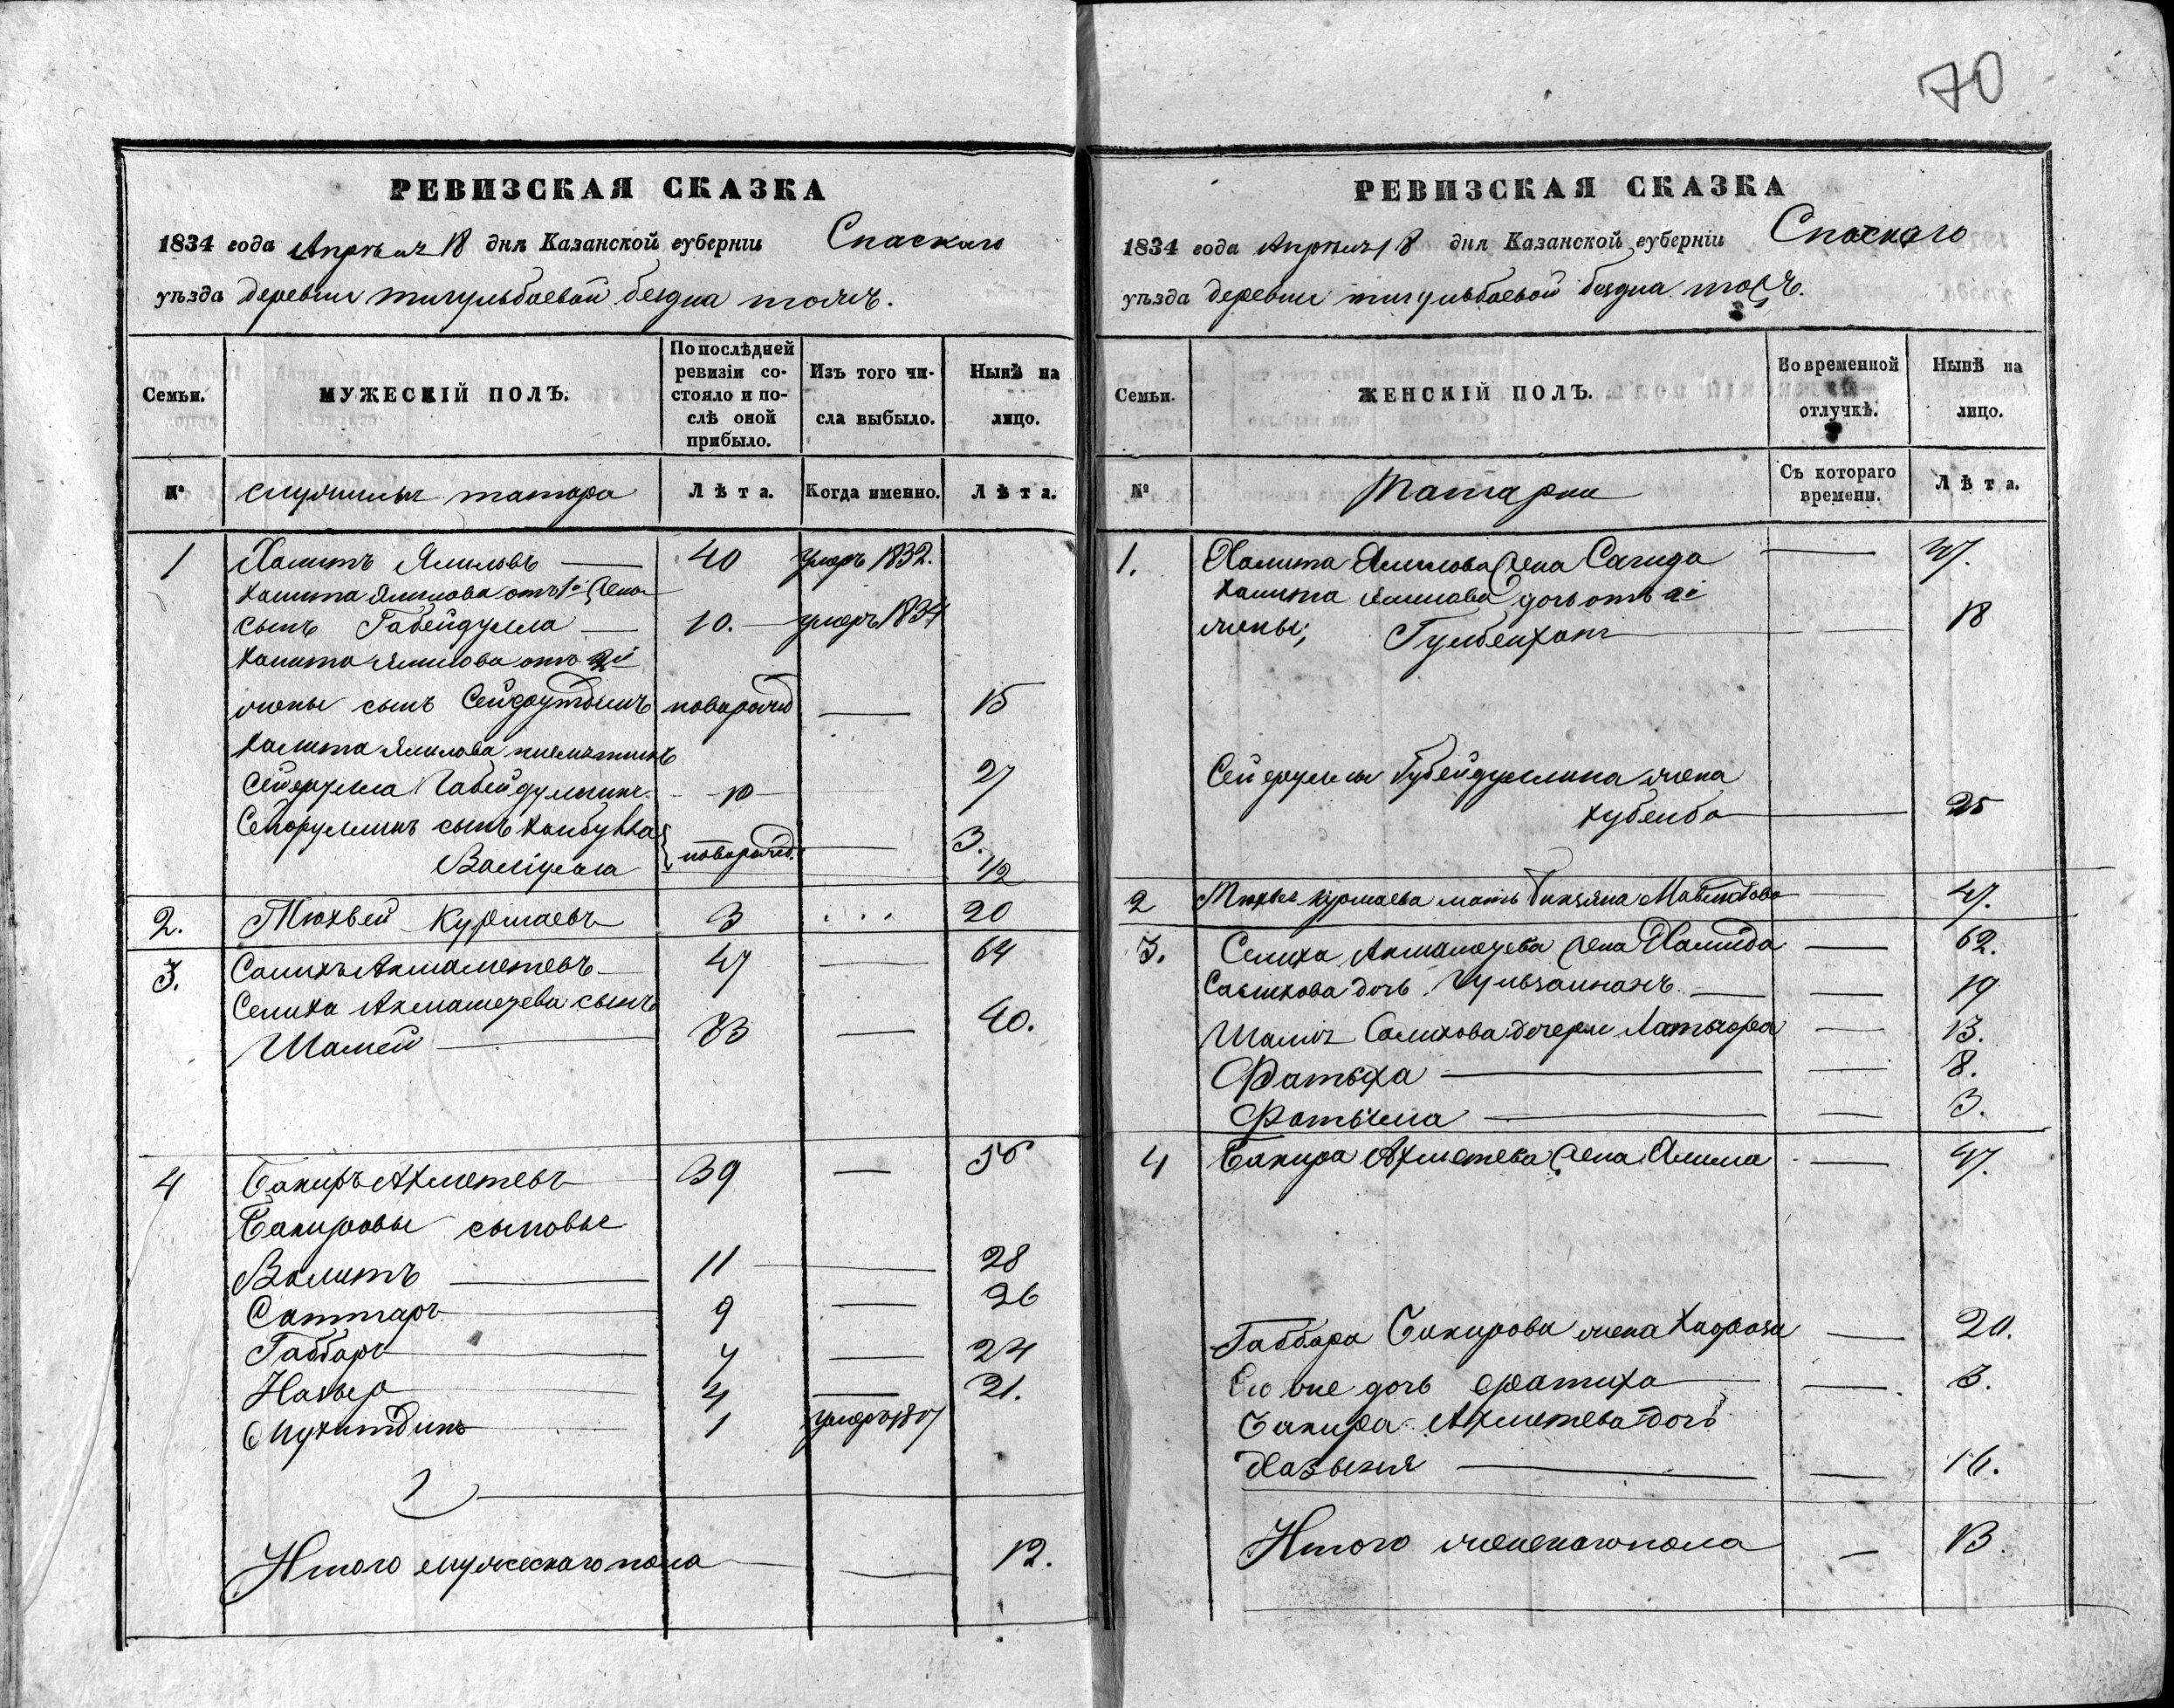 70
РЕВИЗСКАЯ СКАЗКА
1834 года Апреля 18 дня Казанской губернiи Спаскаго
уѣзда деревни тигульбаевой бездна тожъ.
Семьи.
МУЖЕСКІЙ ПОЛЪ.
По послѣдней ревизіи состояло и послѣ оной прибыло.
Изъ того числа выбыло.
Нынѣ на лицо.
№ служилыя татара Лѣта. Когда именно. Лѣта.
1 Хамитъ Ямиловъ — 40 умеръ 1832.
Хамита Ямилова отъ 1й жены
сынъ Габейдулла — 10. — умеръ 1834
Хамита Ямилова отъ 2й
жены сынъ Сейфутдинъ новорожд — 15
Хамита Ямилова племянникъ
Сейфулла Габейдуллинъ — 10 — 27
Сейфуллинъ сынъ Хабулла } новорожд. — 3.
Валіулла 1/2
2. Тюхвей Курмаевъ 3 . . . 20
3. Салихъ Акмаметевъ — 47 — 64
Салиха Акмаметева сынъ
Шамей — 23 — 40.
4 Бакиръ Ахметевъ 39 — 56
Бакировы сыновья
Валитъ — 11 — 28
Саттаръ — 9 — 26
Габбаръ — 7 — 24
Назыръ — 4 — 21.
Мухитдинъ 1 умеръ 1817
Итого мужескаго пола — 12.
РЕВИЗСКАЯ СКАЗКА
1834 года Апреля 18 дня Казанской губернiи Спаскаго
уѣзда деревни тигульбаевой бездна тожъ.
Семьи.
ЖЕНСКІЙ ПОЛЪ.
Во временной отлучкѣ.
Нынѣ на лицо.
№ Татарки Съ котораго времени. Лѣта.
1. Хамита Ямилова жена Сагида — 47.
Хамита Ямилова дочь отъ 2й
жены; Гулбейхан — 18
Сейфуллы Губейдуллина жена
Хубейба — 25
2 Тюхвея Курмаева мать — 47.
3. Салиха Акмаметева жена Хамида — 62.
Салихова дочь Гульзайнапъ — 19.
Шамея Салихова дочери Латыфа — 13.
Фатыха — 8.
Фатыма — 3.
4 Бакира Ахметева жена Ямила — 47.
Габбара Бакирова жена — 20.
Его же дочь Фатиха — 3.
Бакира Ахметева дочь
— 16.
Итого женскаго пола — 13.